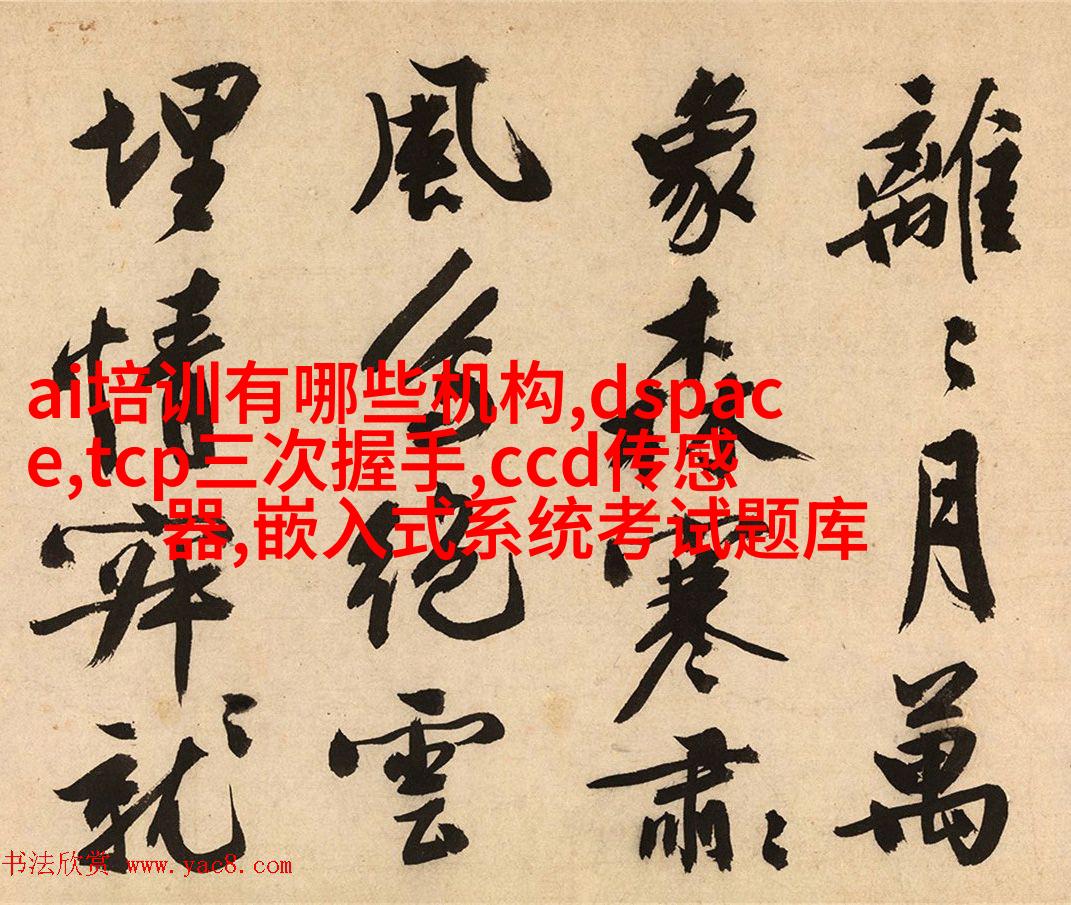 離〻月萬
象森寒肅〻
風絕雲
埋情就〻
ai培训有哪些机构,dspac
e,tcp三次握手,ccd传感
器,嵌入式系统考试题库
书法欣赏 www.yac8.com